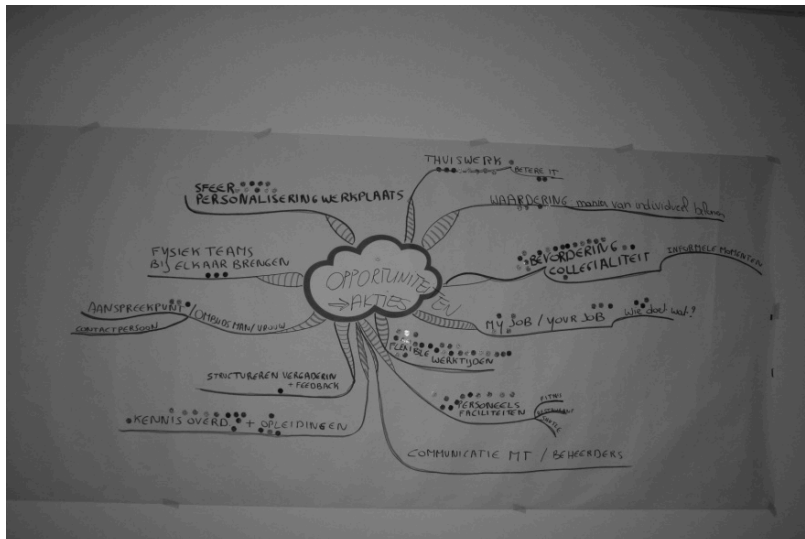 OPPORTUNITEITEN
→ AKTIES
THUISWERK
BETERE IT
WAARDERING manier van individueel
BEVORDERING
COLLEGIALITEIT
INFORMELE MOMENTEN
MY JOB / YOUR JOB
Wie doet wat?
FLEXIBLE
WERKTIJDEN
PERSONEELS
FACILITEITEN
COMMUNICATIE MT / BEHEERDERS
KENNIS OVERD. + OPLEIDINGEN
STRUCTUREREN VERGADERIN
+ FEEDBACK
AANSPREEKPUNT / OMBUDSMAN/VROUW
CONTACTPERSOON
FYSIEK TEAMS
BIJ ELKAAR BRENGEN
SFEER
PERSONALISERING WERKPLAATS